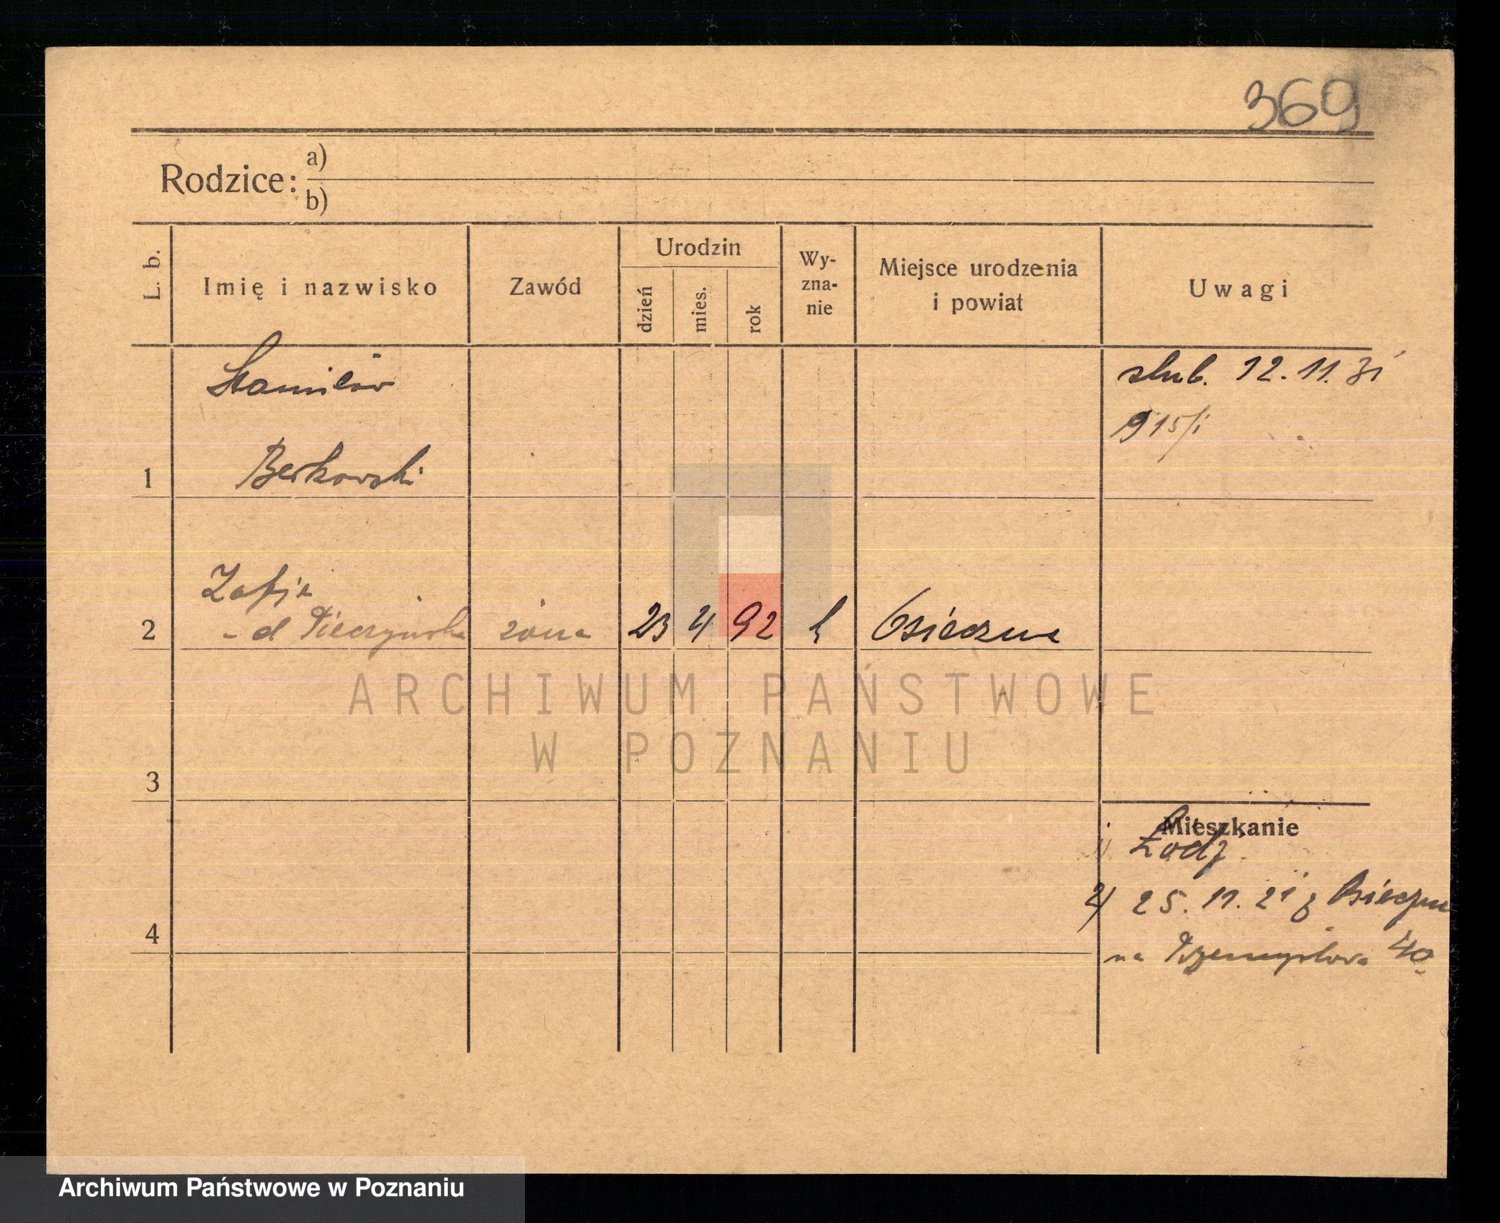 369
Rodzice:
a)
b)
L. b.
Imię i nazwisko
Zawód
Urodzin
dzień
mies.
rok
Wy-
zna-
nie
Miejsce urodzenia
i powiat
Uwagi
Stanisław
ślub. 12.11.31
915/i
1 Berkowski
Zofja
2 - d Pieczyńska żona 23 4 92 Osieczna
3
Mieszkanie
Łódź.
4
2) 25.11.21 z Osieczna
na Przemysłowa 40
ARCHIWUM PAŃSTWOWE
W POZNANIU
Archiwum Państwowe w Poznaniu